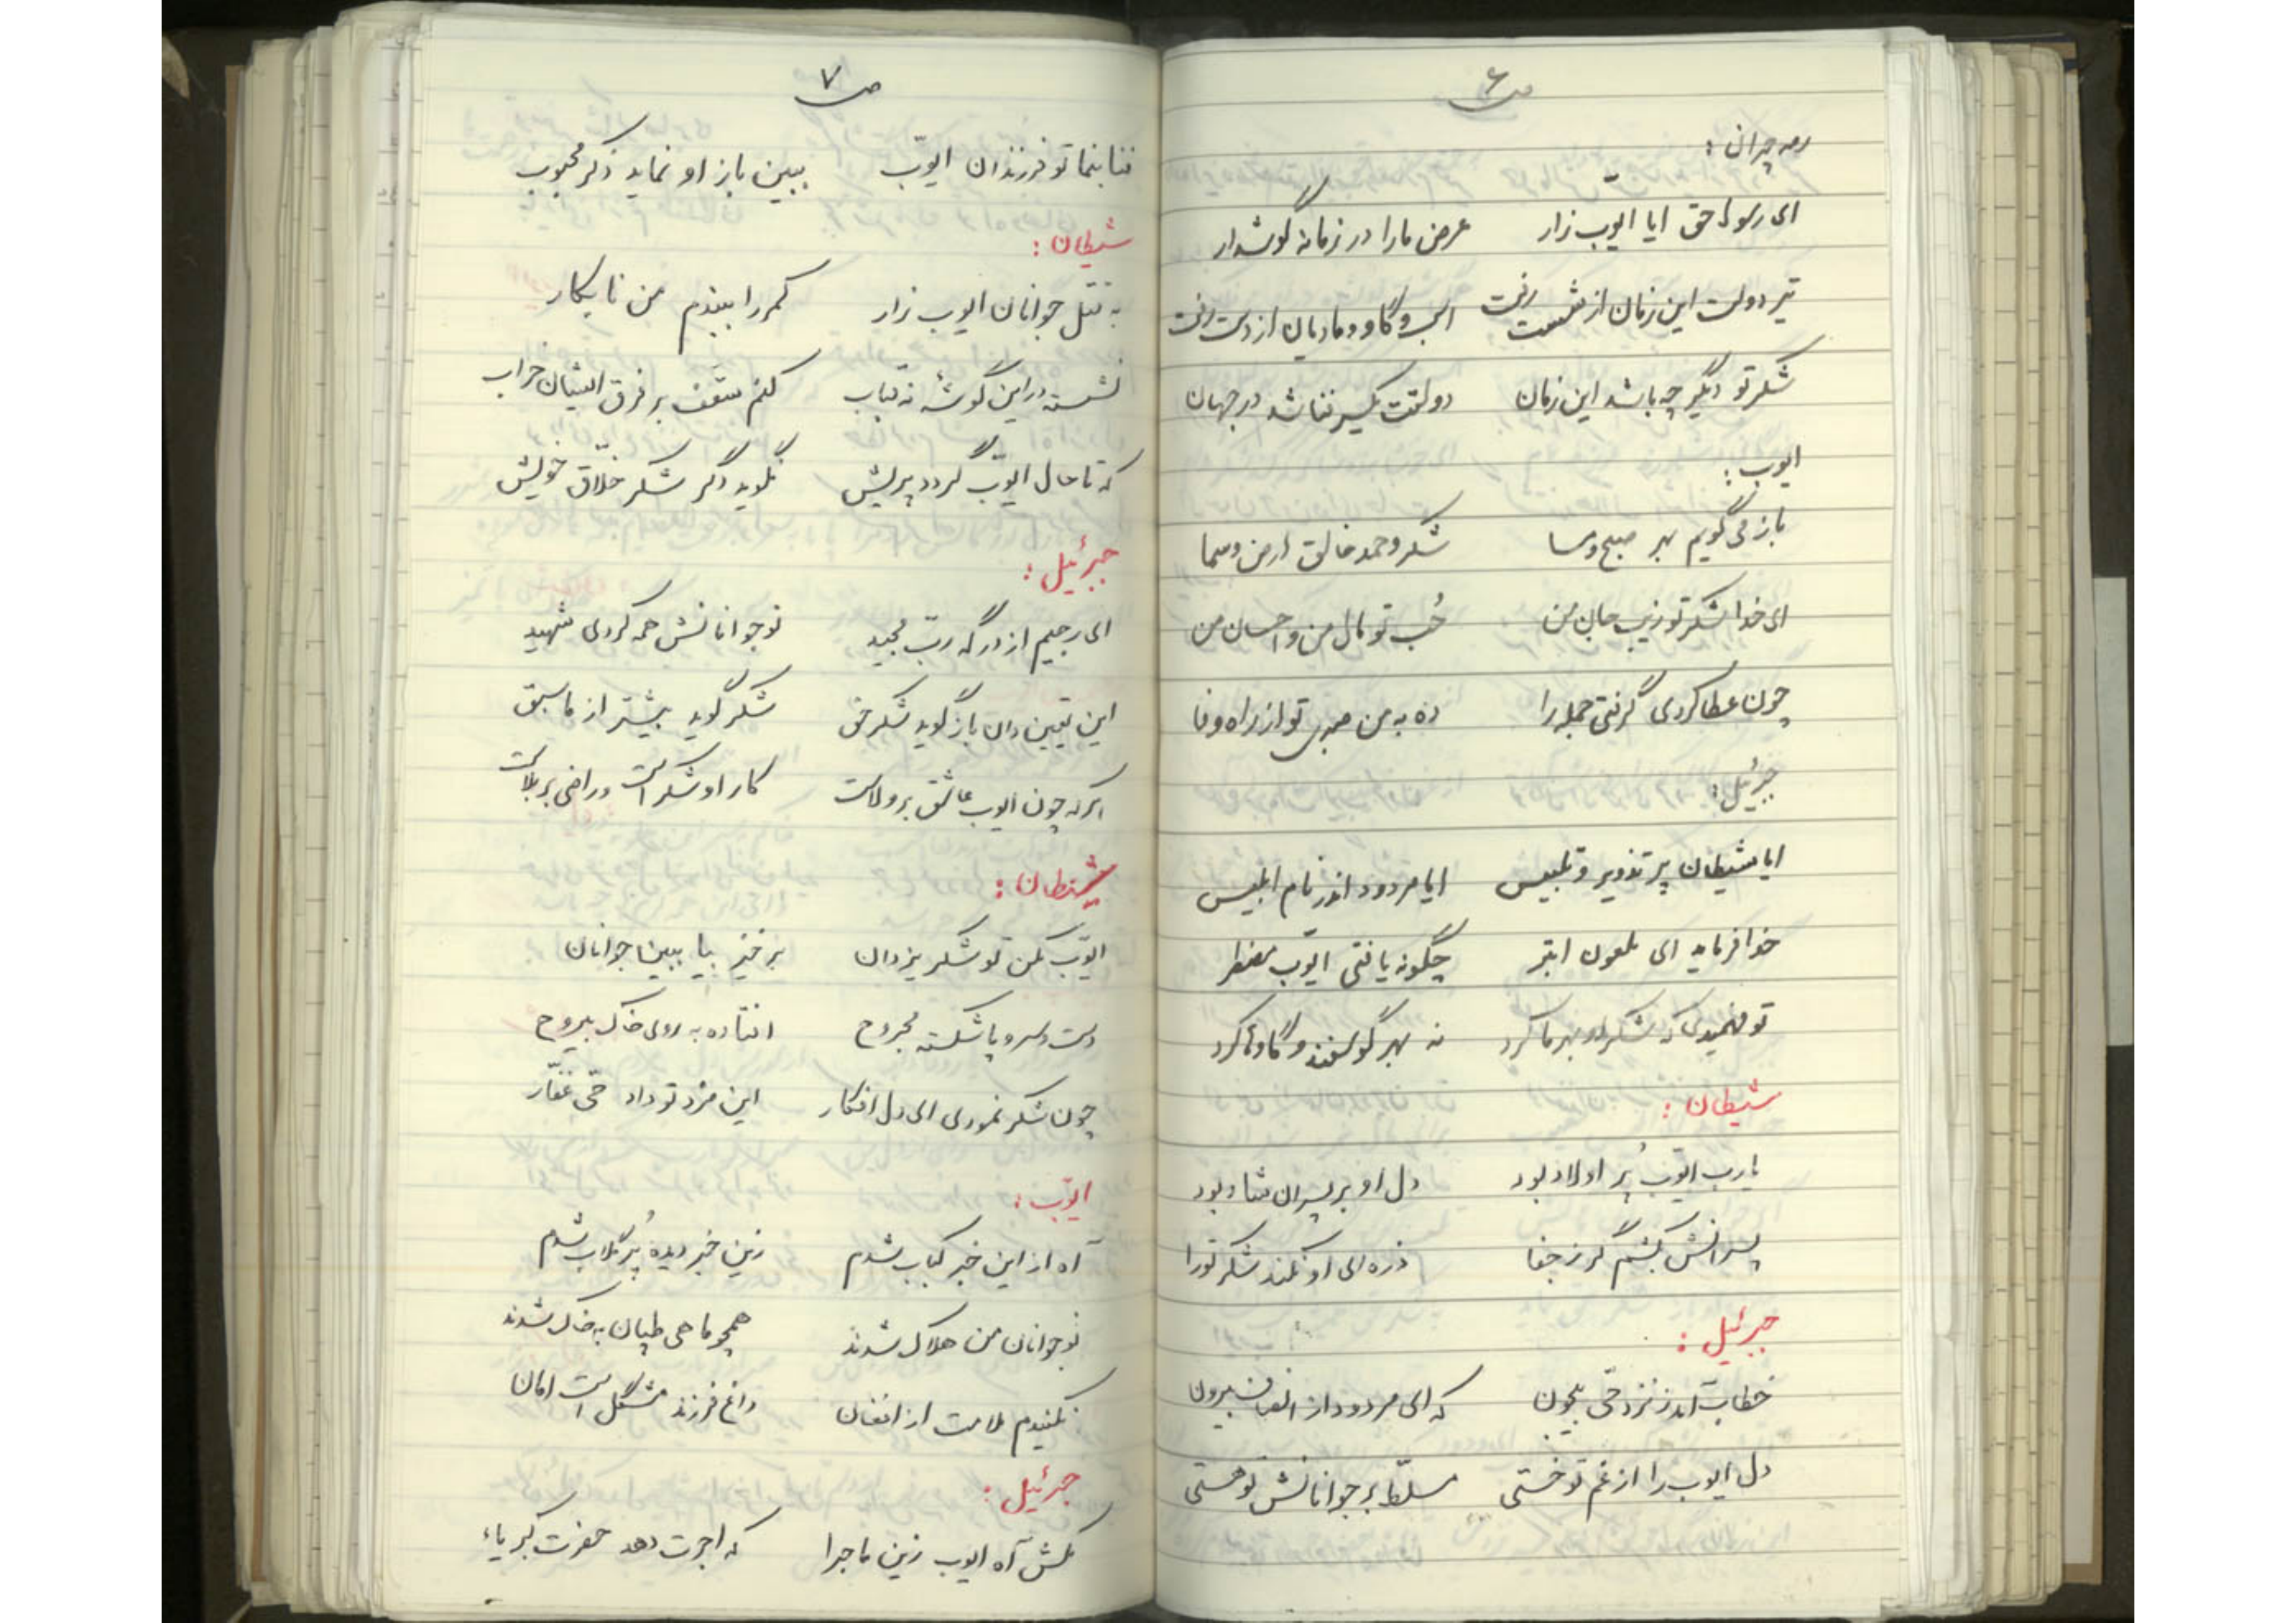 ص ۶
رمه چران :
ای رسول حق ایا ایوّب زار عرض ما را در زمانه گوشدار
تیر دولت این زمان از شست رفت اسب و گاو و مادیان از دست رفت
شکر تو دیگر چه باشد این زمان دولتت یکسر فنا شد در جهان
ایوب :
باز می گویم بهر صبح و مسا شکر و حمد خالق ارض و سما
ای خدا شکر تو زیب جان من حُب تو مال من و احسان من
چون عطا کردی گرفتی جمله را ده به من صبری تو از راه وفا
جبرئیل :
ایا شیطان پر تذویر و تلبیس ایا مردود اندر نام ابلیس
خدا فرماید ای ملعون ابتر چگونه یافتی ایوّب مضطر
تو فهمیدی که شکر او بهر ما کرد نه بهر گوسفند و گاوها کرد
شیطان :
یارب ایوّب پُر اولاد بود دل او بر پسران شاد بود
پسرانش بکشم گر ز جفا ذره ای او نکند شکر تو را
جبرئیل :
خطاب آمد ز نزد حّی بیچون که ای مردود از انصاف بیرون
دل ایوب را از غم تو خستی مسلّط بر جوانانش تو هستی
ص ۷
فنا بنما تو فرزندان ایوّب ببین باز او نماید ذکر محبوب
شیطان :
به قتل جوانان ایوب زار کمر را ببندم من نابکار
نشسته در این گوشه نه قباب کنم سقف بر فرق ایشان خراب
که تا حال ایوّب گردد پریش نگوید دگر شکر خلّاق خویش
جبرئیل :
ای رجیم از درگه ربّ مجید نوجوانانش همه کردی شهید
این یقین دان باز گوید شکر حق شکر گوید بیشتر از ما سبق
هر که چون ایوب عاشق بر ولاست کار او شکر است و راضی بر بلاست
شیطان :
ایوّب مکن تو شکر یزدان برخیز بیا ببین جوانان
دست و سر و پا شکسته مجروح افتاده به روی خاک بیروح
چون شکر نمودی ای دل افکار این مزد تو داد حّی غفّار
ایوّب :
آه از این خبر کباب شدم زین خبر دیده پُر گلاب شدم
نوجوانان من هلاک شدند همچو ماهی طپان به خاک شدند
نکنیدم ملامت از افغان داغ فرزند مشگل است امان
جبرئیل :
مکش آه ایوب زین ماجرا که اجرت دهد حضرت کبریاء